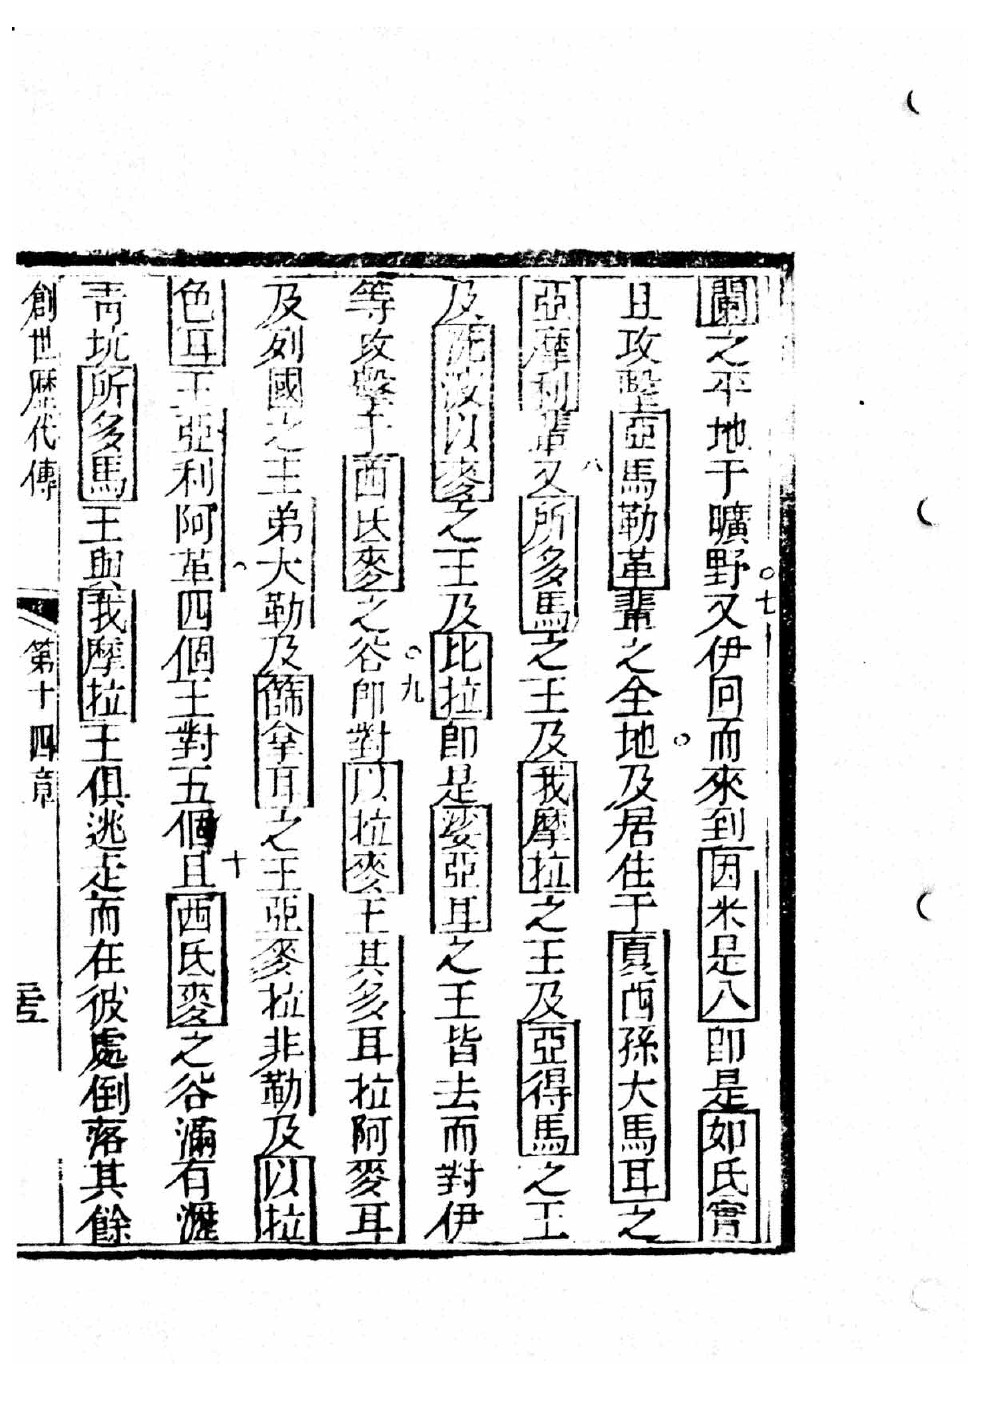 闌之平地于曠野七又伊回而來到因米是八即是如氏實
且攻擊亞馬勒革輩之全地及居住于夏西孫大馬耳之
亞摩利輩八又所多馬之王及我摩拉之王及亞得馬之王
及洗波以麥之王及比拉即是娑亞耳之王皆去而對伊
等攻擊于西氏麥之谷九即對以拉麥王其多耳拉阿麥耳
及列國之王弟大勒及篩拿耳之王亞麥拉非勒及以拉
色耳王亞利阿革四個王對五個十且西氏麥之谷滿有瀝
靑坑所多馬王與我摩拉王俱逃走而在彼處倒落其餘
創世歷代傳 第十四章